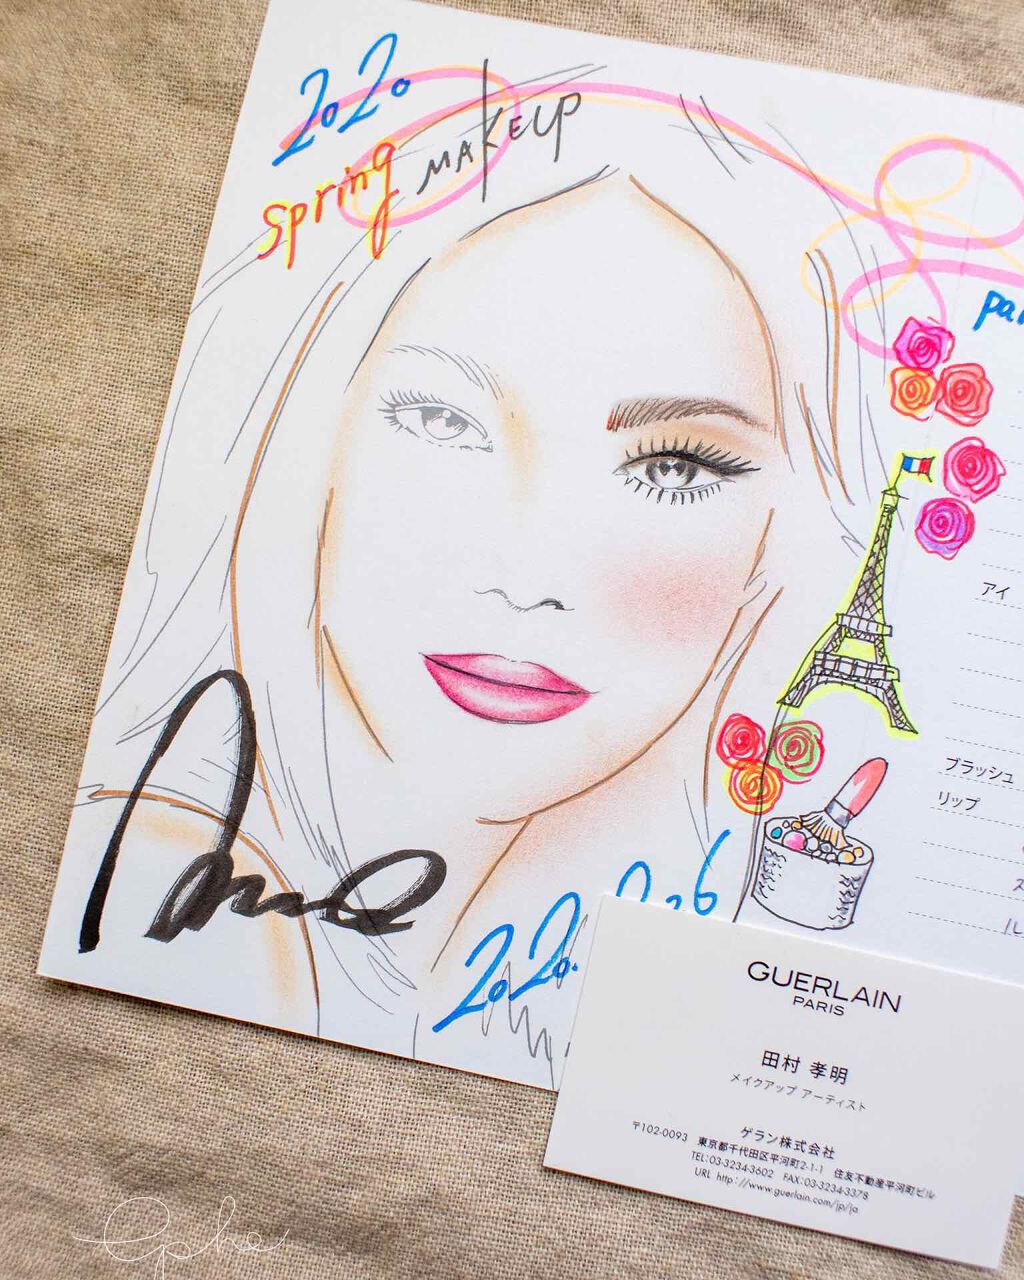 2020
spring MAKEUP
アイ
ブラッシュ
リップ
GUERLAIN
PARIS
田村 孝明
メイクアップ アーティスト
ゲラン株式会社
〒102-0093 東京都千代田区平河町2-1-1 住友不動産平河町ビル
TEL:03-3234-3602 FAX:03-3234-3378
URL http://www.guerlain.com/jp/ja